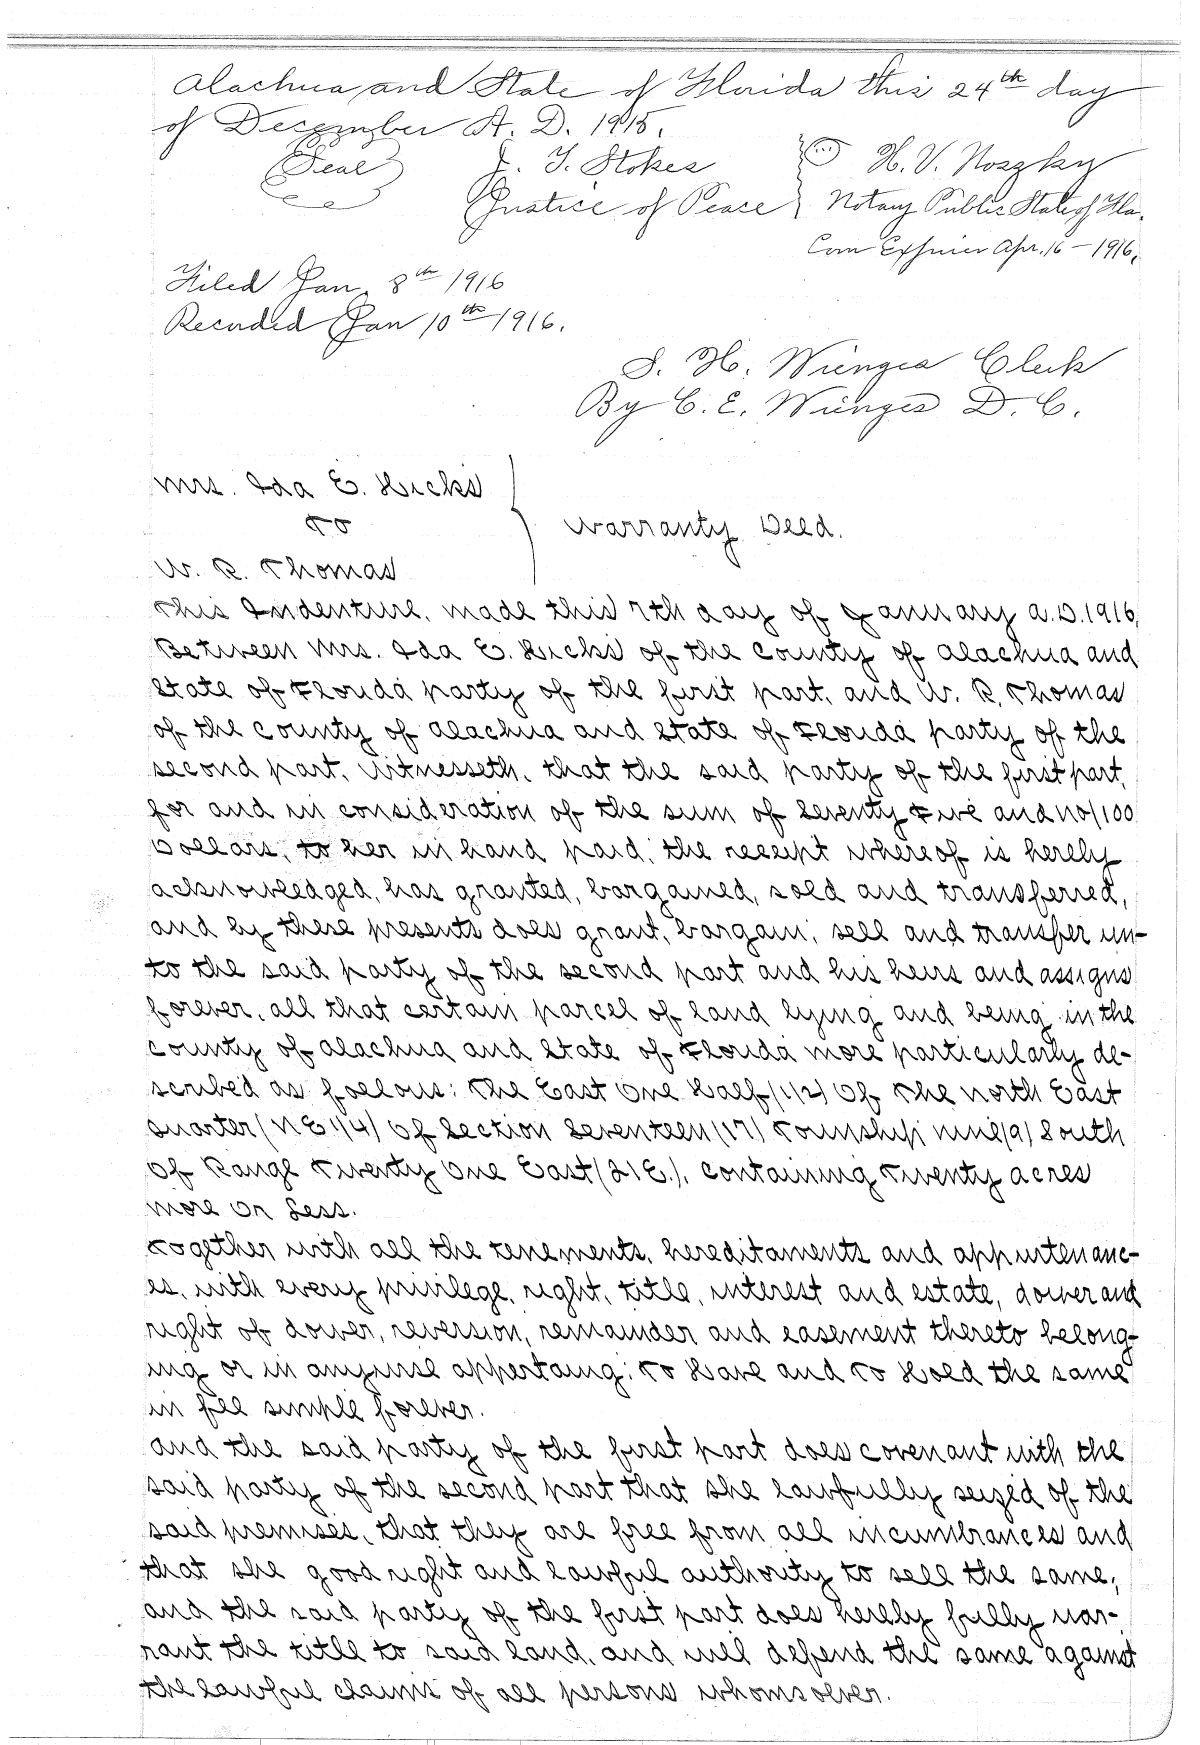 Alachua and State of Florida this 24th day
of December A. D. 1915.
(Seal) J. T. Stokes H. V. Noszky
Justice of Peace Notary Public State of Fla.
Com Expires Apr. 16 - 1916.
Filed Jan. 8th 1916
Recorded Jan 10th 1916.
S. H. Wienges Clerk
By C. E. Wienges D. C.
Mrs. Ida E. Hicks
to
Warranty Deed.
W. R. Thomas
This Indenture, made this 7th day of January A.D. 1916,
Between Mrs. Ida E. Hicks of the County of Alachua and
State of Florida party of the first part, and W. R. Thomas
of the County of Alachua and State of Florida party of the
second part, Witnesseth, that the said party of the first part,
for and in consideration of the sum of Seventy Five and no/100
Dollars, to her in hand paid, the receipt whereof is hereby
acknowledged, has granted, bargained, sold and transferred,
and by these presents does grant, bargain, sell and transfer un-
to the said party of the second part and his heirs and assigns
forever, all that certain parcel of land lying and being in the
County of Alachua and State of Florida more particularly de-
scribed as follows: The East One Half (1/2) Of The North East
Quarter (NE 1/4) Of Section Seventeen (17) Township nine (9) South
Of Range Twenty One East (21 E.), containing Twenty acres
more or Less.
Together with all the tenements, hereditaments and appurtenanc-
es, with every privilege, right, title, interest and estate, dower and
right of dower, reversion, remainder and easement thereto belong-
ing or in anywise appertaing: To Have and To Hold the same
in fee simple forever.
and the said party of the first part does covenant with the
said party of the second part that she lawfully seized of the
said premises, that they are free from all incumbrances and
that she good right and lawful authority to sell the same;
and the said party of the first part does hereby fully war-
rant the title to said land, and will defend the same against
the lawful claims of all persons whomsoever.